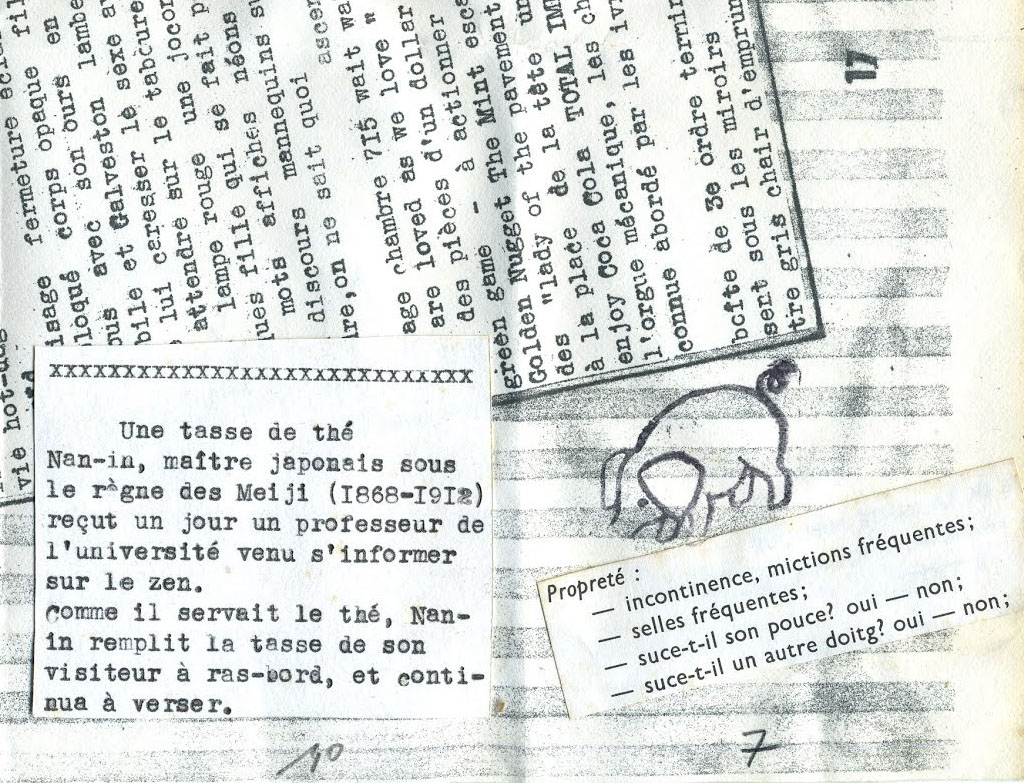 fermeture
isage corps opaque en
loqué son ours
ous avec Galveston le sexe
bile et caresser le tabouret
lui sur le
attendre sur une
lampe rouge se fait
ues fille qui néons
mots affiches
discours mannequins
re,on ne sait quoi
age chambre 715 wait
are loved as we love "
des pièces d'un dollar
green game - à actionner
Golden Nugget The Mint
"lady of the pavement
des place de la tête
à la place de TOTAL
enjoy Coca Cola
l'orgue mécanique, les
connue abordé par les
boîte de 3e ordre
sent sous les miroirs
tre gris chair d'emprun
vie hot-dog
17
XXXXXXXXXXXXXXXXXXXXXXXXXXXXX
Une tasse de thé
Nan-in, maître japonais sous
le règne des Meiji (I868-I9I2)
reçut un jour un professeur de
l'université venu s'informer
sur le zen.
Comme il servait le thé, Nan-
in remplit la tasse de son
visiteur à ras-bord, et conti-
nua à verser.
Propreté :
— incontinence, mictions fréquentes;
— selles fréquentes;
— suce-t-il son pouce? oui — non;
— suce-t-il un autre doitg? oui — non;
10
7